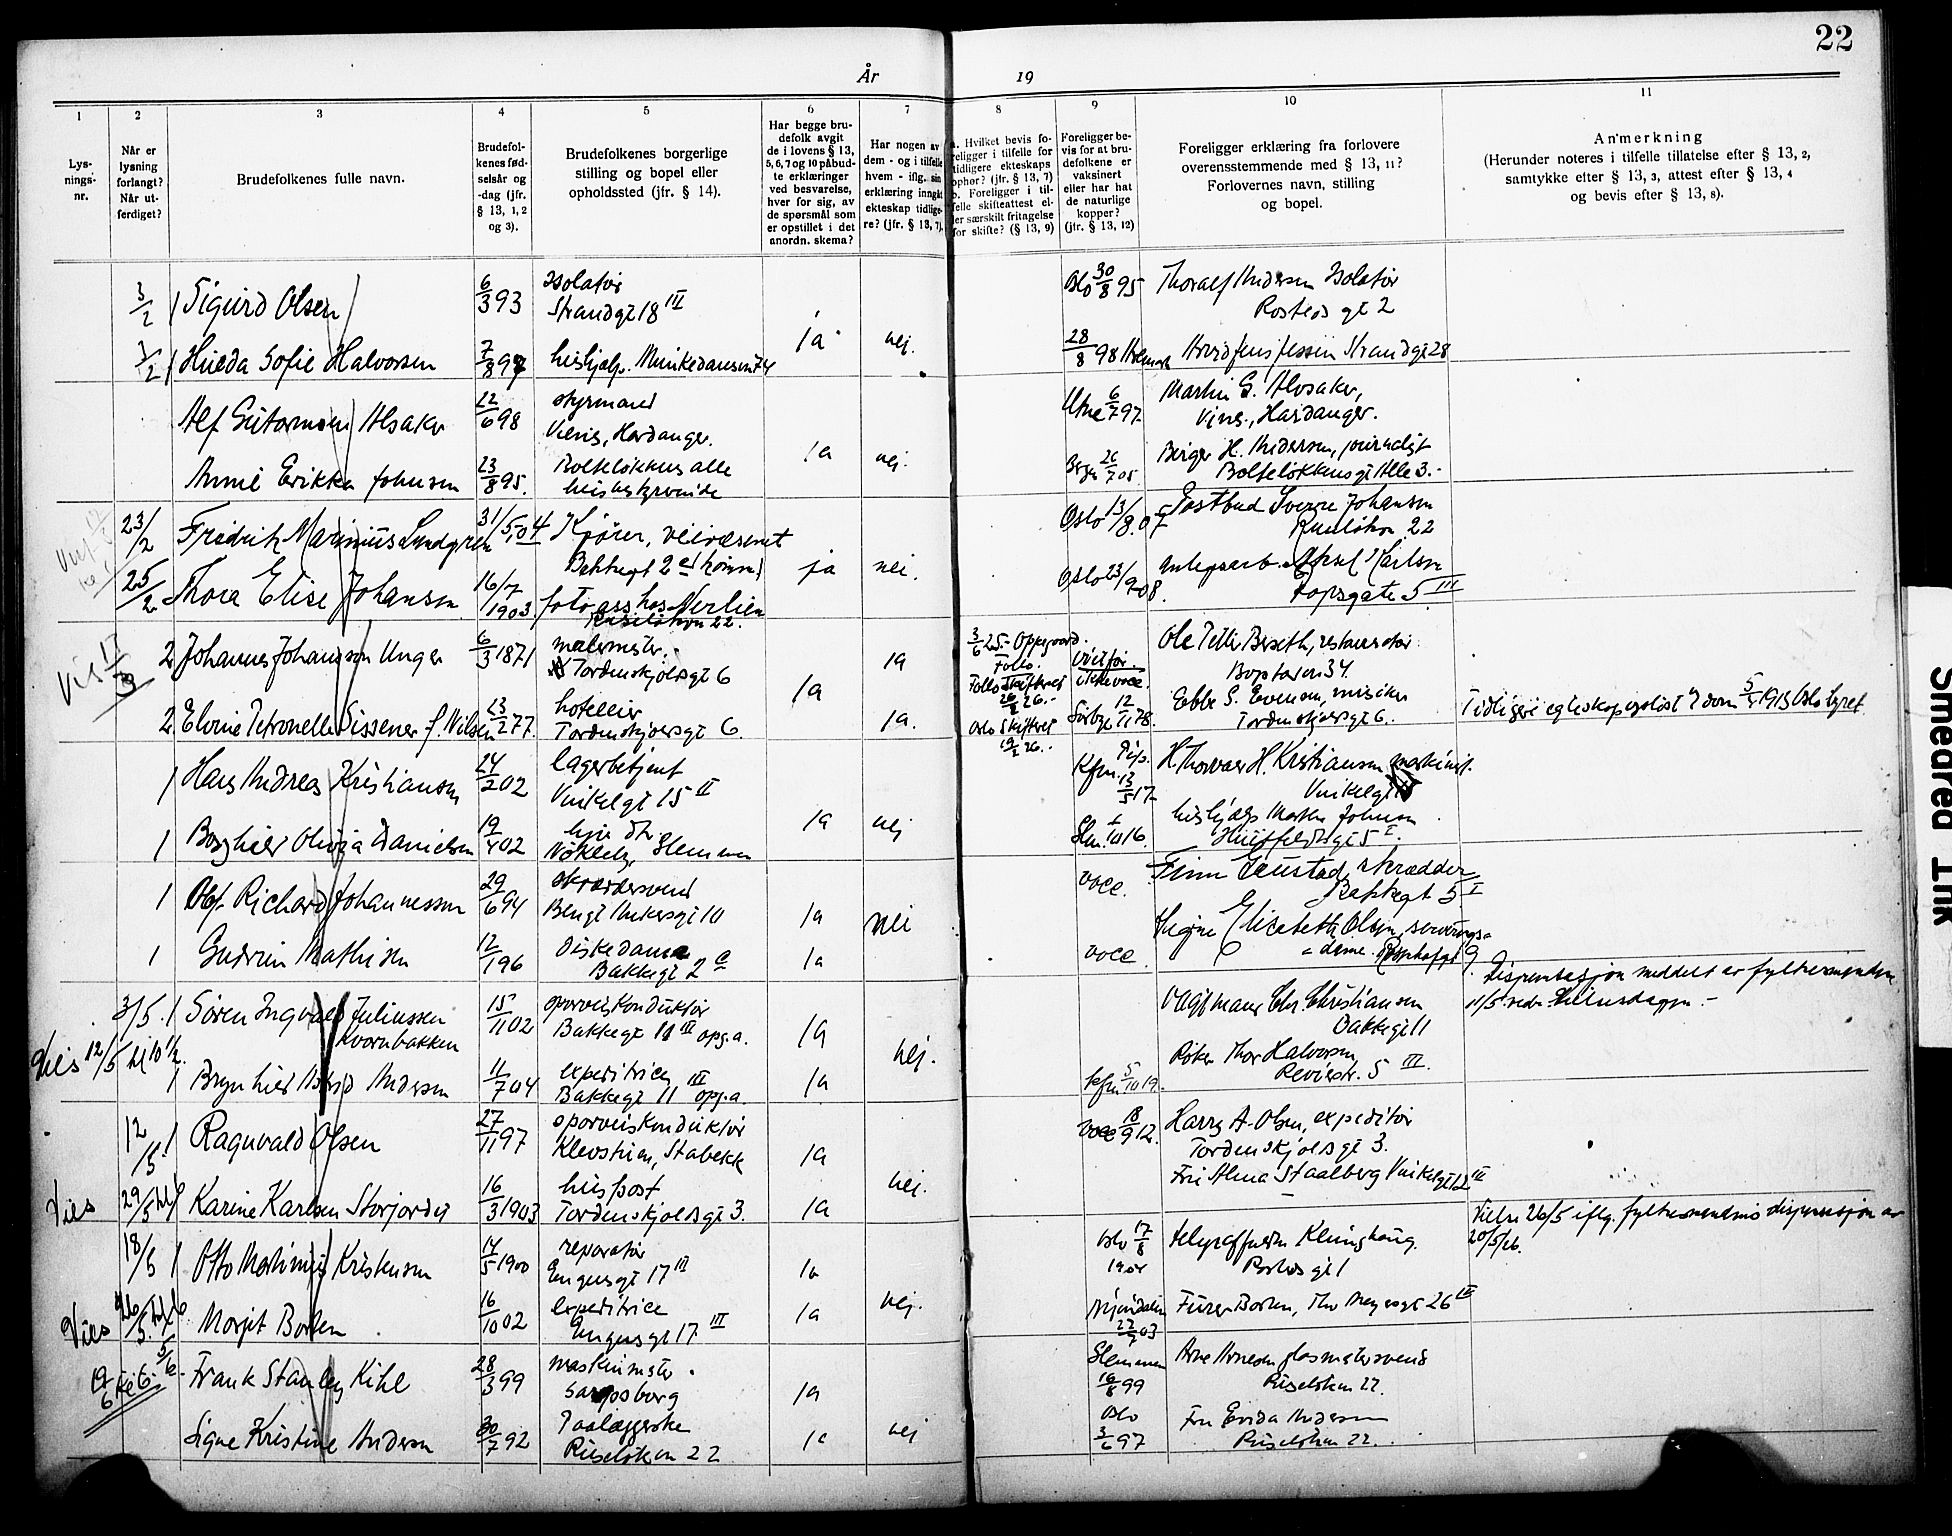 22
År 19
1 2 3 4 5 6 7 8 9 10 11
Lysnings-nr.
Når er lysning forlangt? Når utferdiget?
Brudefolkenes fulle navn.
Brudefolkenes fødselsår og -dag (jfr. § 13, 1, 2 og 3).
Brudefolkenes borgerlige stilling og bopel eller opholdssted (jfr. § 14).
Har begge brudefolk avgit de i lovens § 13, 5, 6, 7 og 10 påbudte erklæringer ved besvarelse, hver for sig, av de spørsmål som er opstillet i det anordn. skema?
Har nogen av dem - og i tilfelle hvem - iflg. sin erklæring inngått ekteskap tidligere? (jfr. § 13, 7).
a. Hvilket bevis foreligger i tilfelle for tidligere ekteskaps ophør? (jfr. § 13, 7) b. Foreligger i tilfelle skifteattest eller særskilt fritagelse for skifte? (§ 13, 9)
Foreligger bevis for at brudefolkene er vaksinert eller har hat de naturlige kopper? (jfr. § 13, 12)
Foreligger erklæring fra forlovere overensstemmende med § 13, 11? Forlovernes navn, stilling og bopel.
Anmerkning (Herunder noteres i tilfelle tillatelse efter § 13, 2, samtykke efter § 13, 3, attest efter § 13, 4 og bevis efter § 13, 8).
3/2 1 Sigurd Olsen 6/3 93 Isolatør Oslo 30/8 95 Thoralf Andersen Isolatør
Strandgt 18 III ja nej. Rosteds gt 2
3/2 1 Hulda Sofie Halvorsen 7/8 97 hushjelp. Munkedamsv 74 28/8 98 Strandgt 28
Alf Guttormsen Alsaker 22/6 98 styrmand Utne 6/7 97 Martin G. Alsaker,
Hardanger. ja nej. Hardanger.
Anna Erikka Johnsen 23/8 95. Bolteløkkens alle Bergn 26/7 05 Birger H. Andersen, journalist
husbestyrerinde Bolteløkkens alle 3.
23/2 Fredrik Marinius Lundgren 31/5 04 Kjører, veivæsenet Oslo 13/8.07 Postbud Sverre Johansen
Bakkegt 2 ja nei. Ruseløkvn 22
25/2 Thora Elise Johansen 16/7 1903 foto ass hos Nerlien Oslo 23/9 08. Aksel Karlsen
Ruseløkvn 22. Fossgate 5 III
Vies 17/3 2 Johannes Johansen Unger 6/3 1871 malermster. ja 3/6 25. Oppegaard. Follo. Ole Petter Braseth, restauratør
Tordenskjoldsgt 6 ja Follo Skifteret 26/2 26.
2 Elvine Petronelle Sissener f. Nilsen 23/2 77. hoteleier ja. Oslo Skifteret 19/2 26. 12/11 78. Ebbe S. Evensen, musiker Tidligere egteskap opløst v dom 5/5 1913 Oslo byret
Tordenskjoldsgt 6. Tordenskjoldsgt 6.
1 Hans Andreas Kristiansen 24/2 02 lagerbetjent Kfm. 13/5 17 H. Kristiansen maskinist.
Vinkelgt 15 II ja nej Vinkelgt 15
1 Borghild Olivia Danielsen 19/4 02 Nøkleby Slemmen Slem. 1/10 16 hushjelp Marten Johnsen
Huitfeldtsgt 5 I.
1 Olaf Richard Johannessen 29/6 94 skræddersvend vacc. Finn Tenstad, skrædder
Bengt Ankersgt 10 ja nei Bakkegt 5 I
1 Gudrun Mathisen 12/1 96 Diskedame vacc. Signe Elisabeth Olsen, serverings-
Bakkegt 2 c ja dame. 9
3/5. 1 Søren Ingvald Juliussen 15/11 02 sporveiskonduktør Vagtmand Chr. Christiansen Dispensasjon meddelt av fylkesmanden
Kvornbakken Bakkegt 11 III opg.a. ja Bakkegt 11 11/5
Vies 12/5 kl 10 1/2. nej.
1 Brynhild Astrid Andersen 11/7 04 expeditrice Kfm 5/10 19. Røker Thor Halvorsen
Bakkegt 11 III opg.a. ja Revierstr. 5 III.
12/5 1 Ragnvald Olsen 27/11 97 sporveiskonduktør vacc 18/9 12. Harry A. Olsen, expeditør
Stabekk ja Tordenskjoldsgt 3.
Vies 29/5 Karine Karlsen Storjordet 16/3 1903 huspost nej. Fru Alma Staalberg Vinkelgt 12 III
Tordenskjoldsgt 3. ja
18/5 1 Otto Martinius Kristensen 14/5 1900 reparatør Oslo 17/8 1901 Vielse 26/5 iflg. fylkesmandens dispensasjon av 20/5/26.
Enggt 17 III ja Rostedsgt 1
Vies 26/5 Margit Borten 16/10 02 expeditrice nej. Mjøndalen 22/7 03 Borten, Thv Meyersgt 26 III
17 III ja
5/6 Frank Stanley Kihl 28/3 99 maskinmster. Slemmen 16/8 99 Arne Arnesen glasmestersvend
Sarpsborg ja Ruseløkvn 22.
Signe Kristine Andersen 30/7 92 Paalæggerske ja nej Oslo 3/6 97 Fru Andersen
Ruseløkvn 22 Ruseløkvn 22.
Smeared Ink